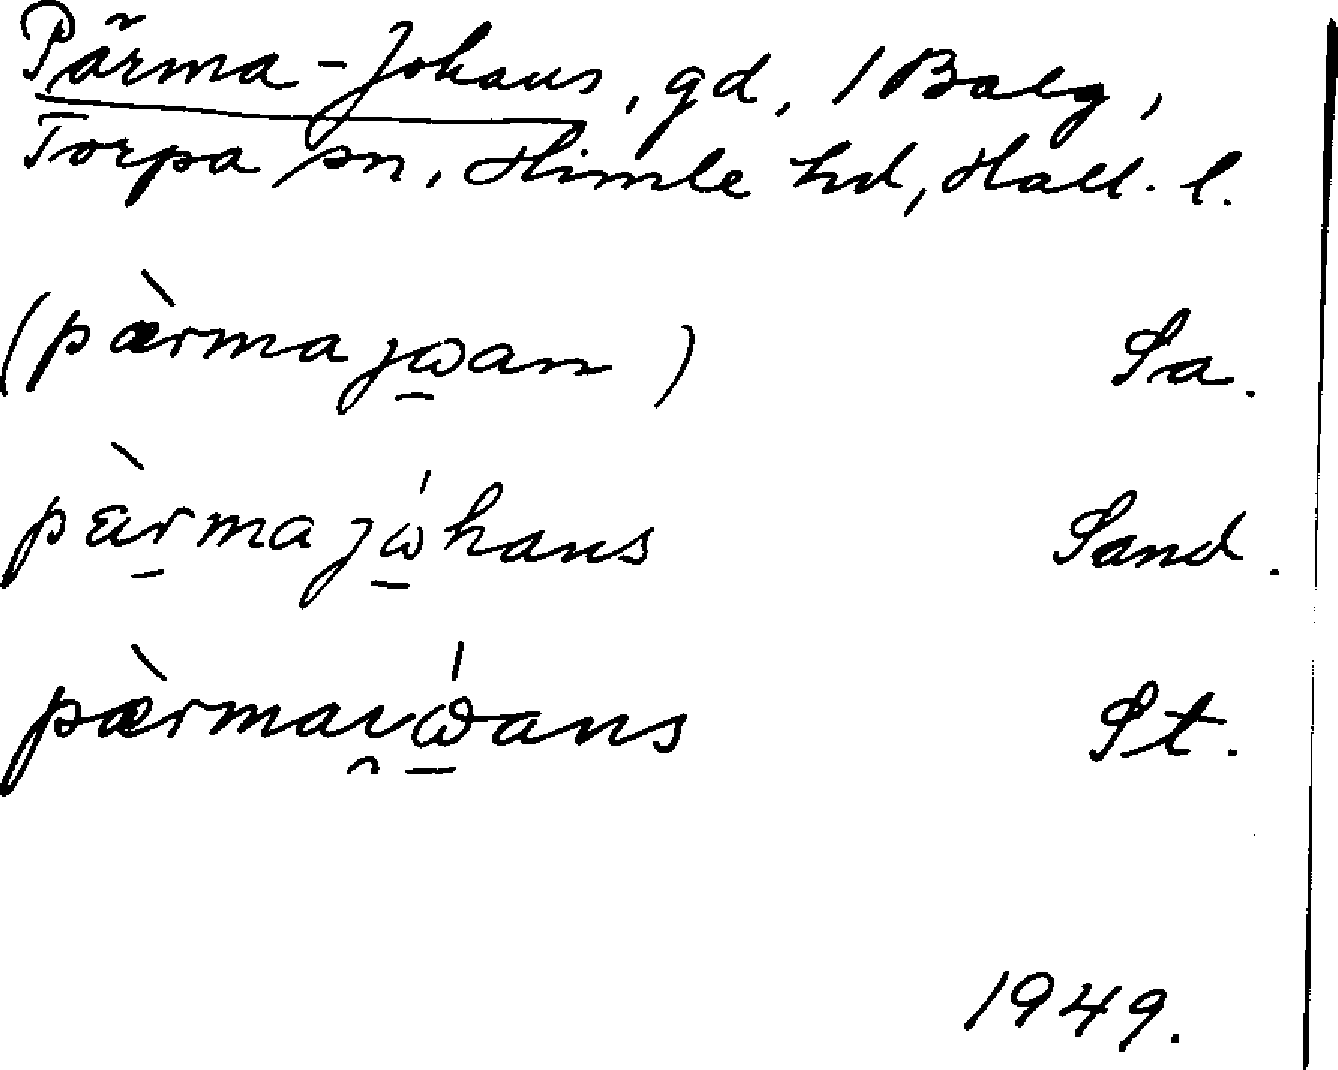 Pärma-Johans, gd, 1 Balg,
Torpa sn, Himle hd, Hall. l.
(pæ̀rmajω̱an) Sa.
pæ̀ṟmajώ̱hans Sand.
pæ̀rmaı̯ώ̱ans St.
1949.